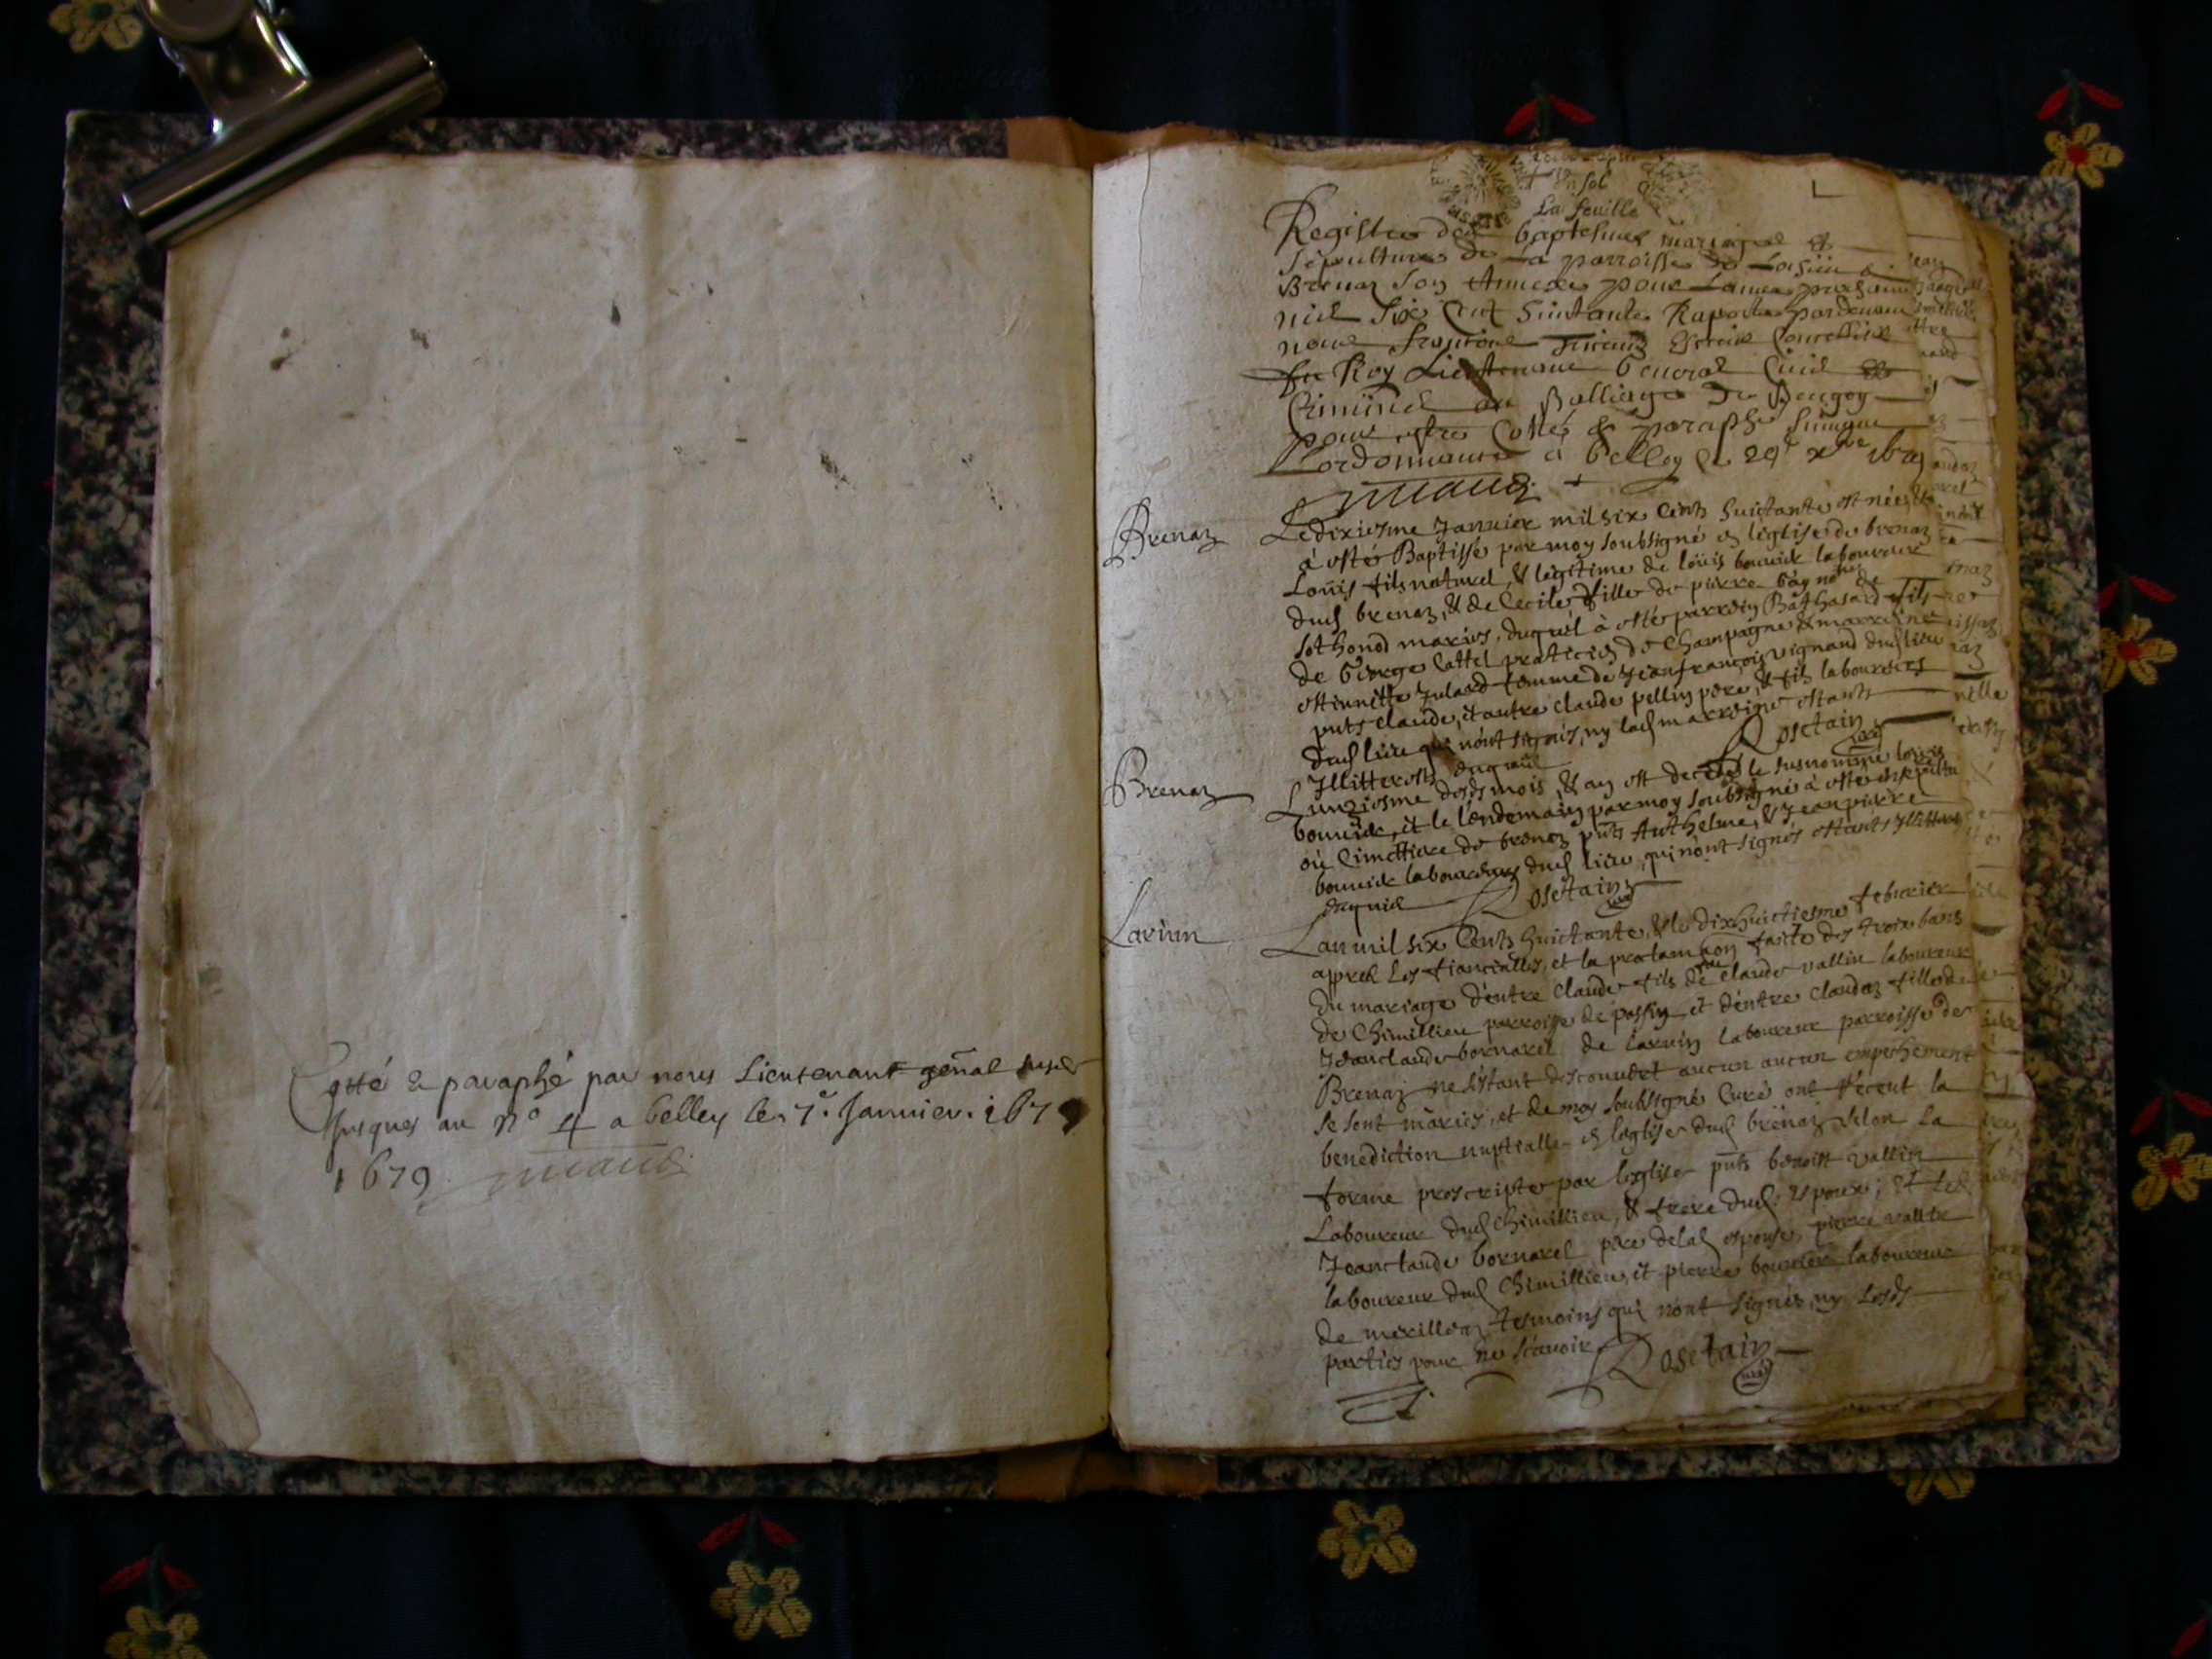 Cotté & paraphé par nous Lieutenant genal susd
Jusques au n° 4 a belley le 7e. Janvier. 1679
1679
un sol
La feuille
Registre des baptesmes mariages et
sepultures de La parroisse de Lochieu et
Brenaz son Annexe pour Lannee prochaine
mil six Cent huictante Raporté pardevant
nous françois escuier Conseiller
du Roy Lieutenant General Civil et
Criminel au Balliage de Beugey
pour estre Cotté & paraphé suivant
Lordonnance à belley le 29e xbre 1679
Brenaz
Le dixiesme Janvier mil six Cents huictante est né, et
à esté Baptissé par moy soubsigné en l'eglise de brenaz
Louis fils naturel, & legitime de louis bouvier laboureur
dud brenaz, & de Cecile fille de pierre
sothonod mariés, duquel à esté parrein Balthasard fils
de George Cattel praticien de Champagne & marreine
estiennette Julard femme de Jean françois vignand dud lieu
pnts claude, et autre claude pellin pere, & fils laboureurs
dud lieu qui n'ont signés, ny lad marreine estants
Illitteres enquis Rosetain curé
Brenaz
L'unziesme desd mois, & an est decedé le susnommé louis
bouvier, et le lendemain par moy soubsigné à esté inhumé
au Cimettiere de brenaz pnts Anthelme, & Jean pierre
bouvier laboureurs dud lieu, qui n'ont signés estants Illitteres
enquis Rosetain curé
Laruin
L'an mil six Cents huictante, & le dixhuictiesme febvrier
appres les fiancialles, et la proclamaon faicte des trois bans
du mariage d'entre claude fils de claude vallin laboureur
de Chimillieu parroisse de passin et d'entre claudaz fille de
Jeanclaude bornarel de laruin laboureur parroisse de
Brenaz ne s'estant descouvert aucun aucun empechement
se sont mariés, et de moy soubsigné Curé ont receut la
benediction nuptialle en l'eglise dud brenaz selon la
forme prescripte par l'eglise pnts benoist vallin
Laboureur dud Chimillieu, & frere dud espoux; et led
Jeanclaude bornarel pere de lad espouse, pierre vallin
laboureur dud Chimillieu, et pierre bouvier laboureur
de merilleaz tesmoins qui n'ont signés, ny lesds
parties pour ne scavoir Rosetain curé